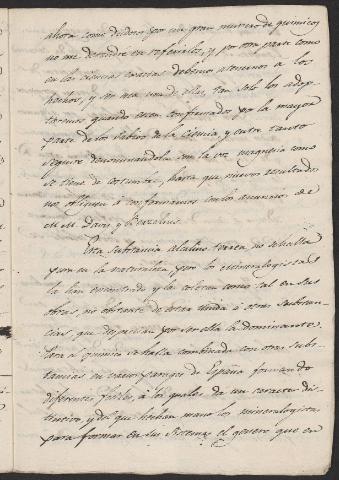 ahora como dudoso por un gran numero de quimicos
no me detendré en referirlos, y por otra parte como
en las ciencias exactas debemos atenernos a los
hechos, y no mas uno de ellos, tan solo los adop-
taremos quando esten confirmados por la mayor
parte de los Sabios de la Ciencia, y entre tanto
seguire denominandola con la voz magnesia como
se tiene de costumbre, hasta que nuevos resultados
nos obliguen á conformarnos con los anuncios de
M.M. Davy y Berzelius.
Esta substancia alcalino terrea no se halla
pura en la naturaleza, pero los mineralogistas
la han encontrado y la colocan como tal en sus
obras, no obstante de estar unida á otras substan-
cias, que disfrazan por ser ella la dominante.
Para el quimico se halla combinada con otras subs-
tancias en varios parages de España formando
diferentes fosiles, á los quales da un caracter dis-
tintivo, y del que hechan mano los mineralogistas
para formar en sus Sistemas el genero que en